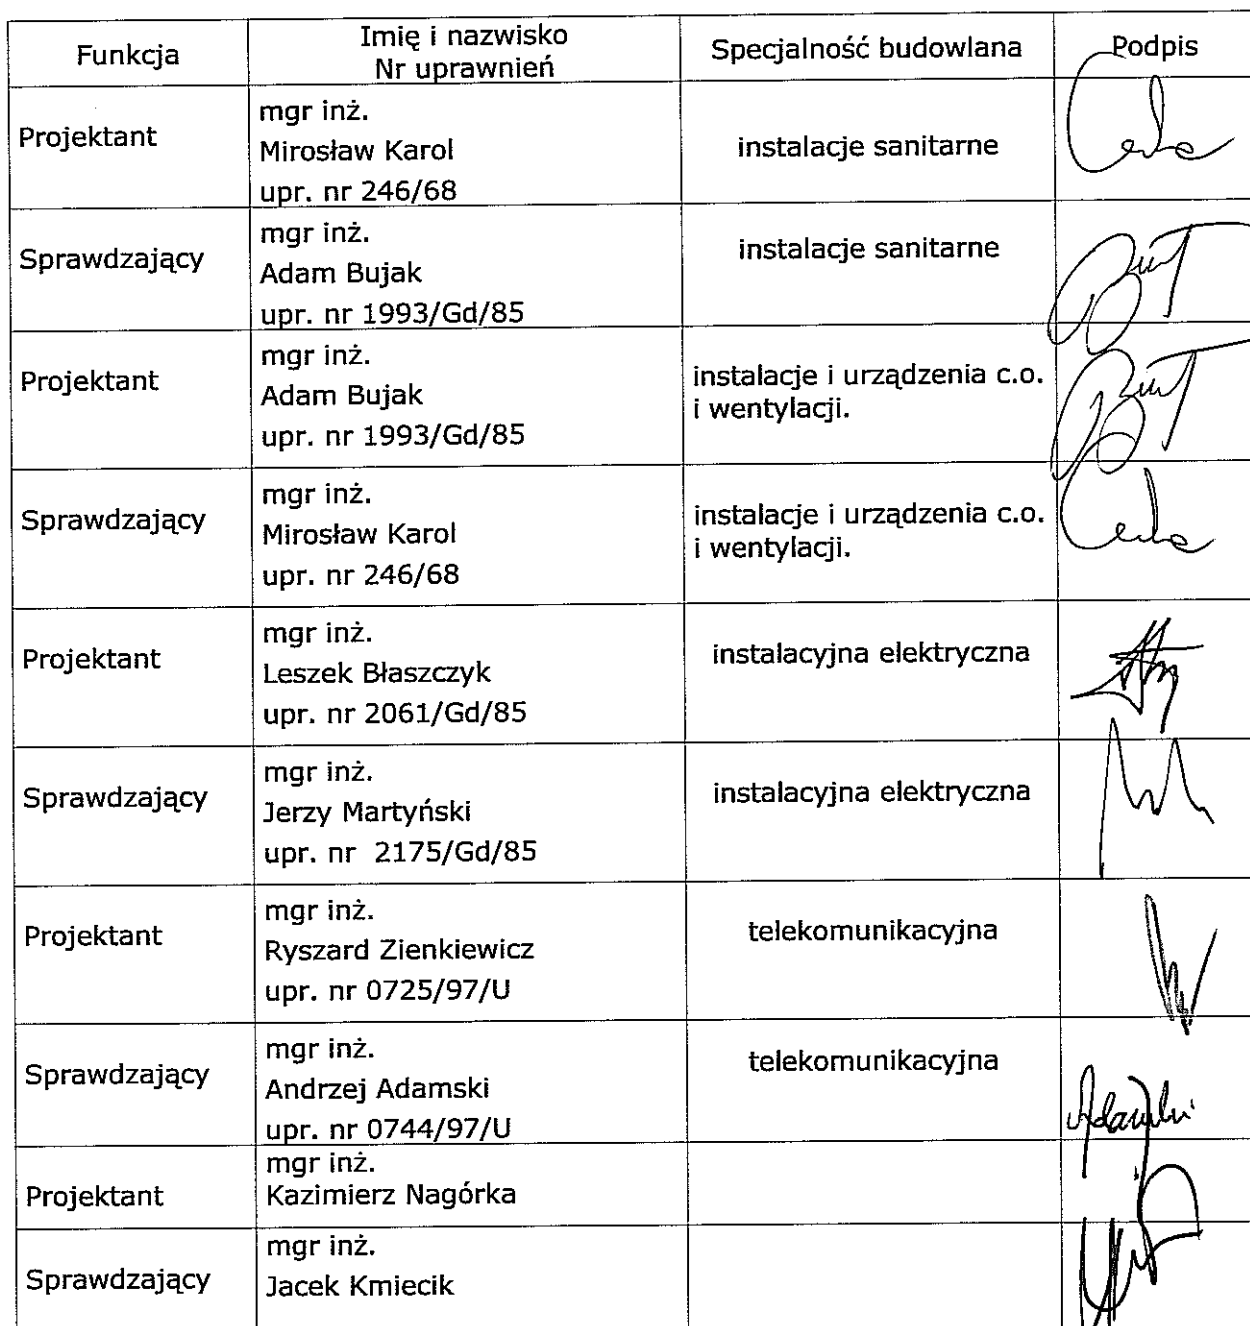 Funkcja
Imię i nazwisko
Nr uprawnień
Specjalność budowlana
Podpis
Projektant
mgr inż.
Mirosław Karol
upr. nr 246/68
instalacje sanitarne
Sprawdzający
mgr inż.
Adam Bujak
upr. nr 1993/Gd/85
instalacje sanitarne
Projektant
mgr inż.
Adam Bujak
upr. nr 1993/Gd/85
instalacje i urządzenia c.o.
i wentylacji.
Sprawdzający
mgr inż.
Mirosław Karol
upr. nr 246/68
instalacje i urządzenia c.o.
i wentylacji.
Projektant
mgr inż.
Leszek Błaszczyk
upr. nr 2061/Gd/85
instalacyjna elektryczna
Sprawdzający
mgr inż.
Jerzy Martyński
upr. nr 2175/Gd/85
instalacyjna elektryczna
Projektant
mgr inż.
Ryszard Zienkiewicz
upr. nr 0725/97/U
telekomunikacyjna
Sprawdzający
mgr inż.
Andrzej Adamski
upr. nr 0744/97/U
telekomunikacyjna
Projektant
mgr inż.
Kazimierz Nagórka
Sprawdzający
mgr inż.
Jacek Kmiecik